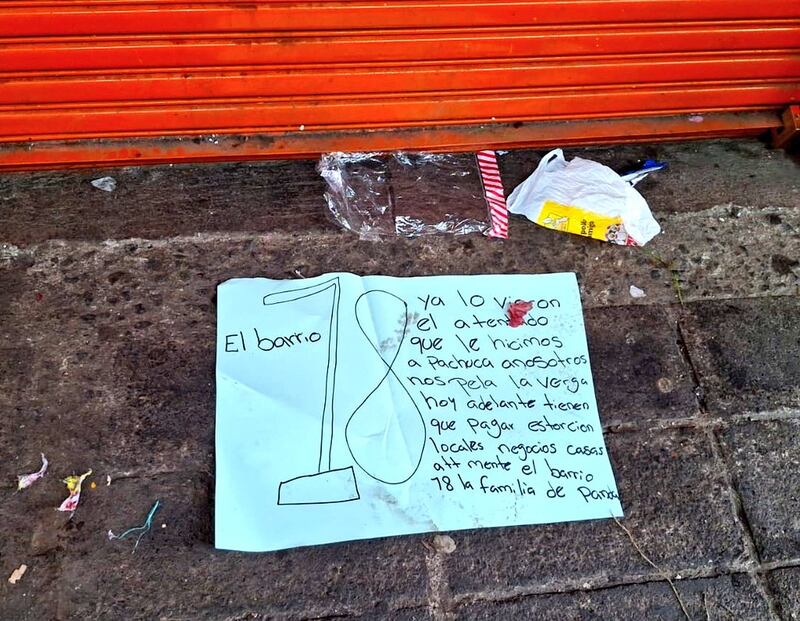 El barrio
18
ya lo vieron
el atentado
que le hicimos
a Pachuca anosotros
nos pela la verga
hoy adelante tienen
que pagar estorcion
locales negocios casas
att mente el barrio
18 la familia de